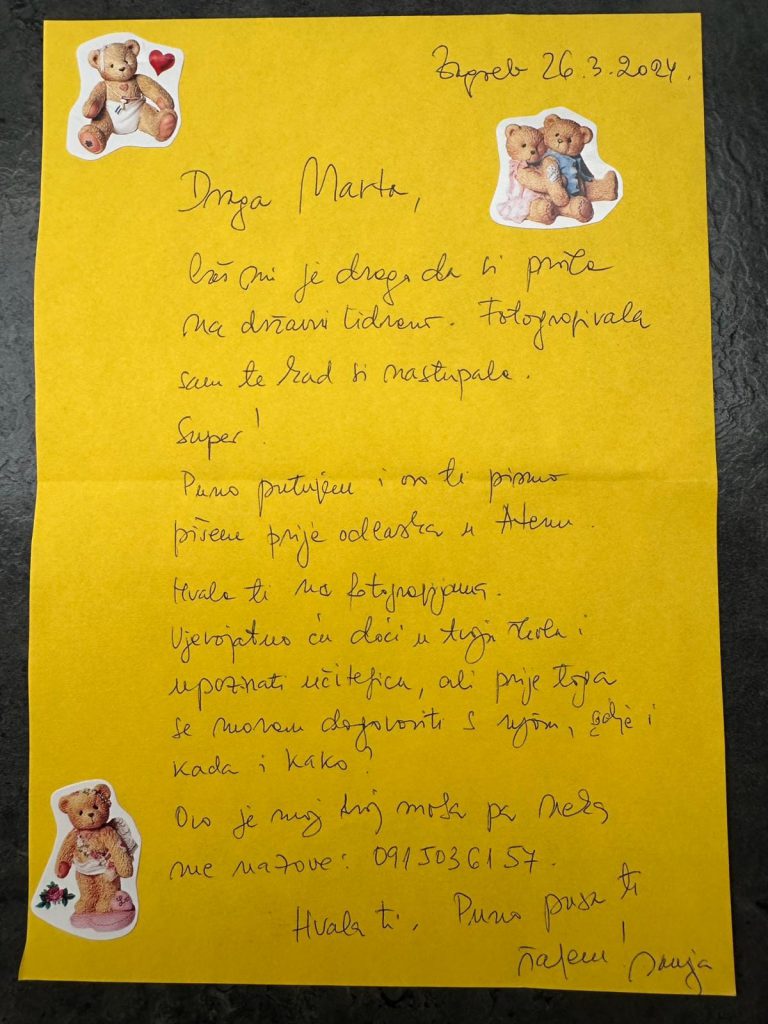 Zagreb 26.3.2024.
Draga Marta,
baš mi je drago da si prošla
na državni Lidrano. Fotografirala
sam te kad si nastupala.
Super!
Puno putujem i ovo ti pismo
pišem prije odlaska u Atenu.
Hvala ti na fotografijama.
Vjerojatno ću doći u tvoju školu i
upoznati učiteljicu, ali prije toga
se moram dogovoriti s njom, gdje i
kada i kako?
Ovo je moj broj moba pa neka
me nazove: 0915036157.
Hvala ti. Puno pusa ti
šaljem! Sanja